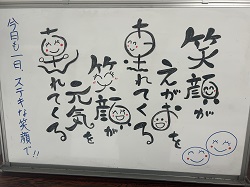 笑顔が
えがおを
うまれてくる
笑顔が
元気を
恵れてくる
今日も一日、ステキな笑顔で!!